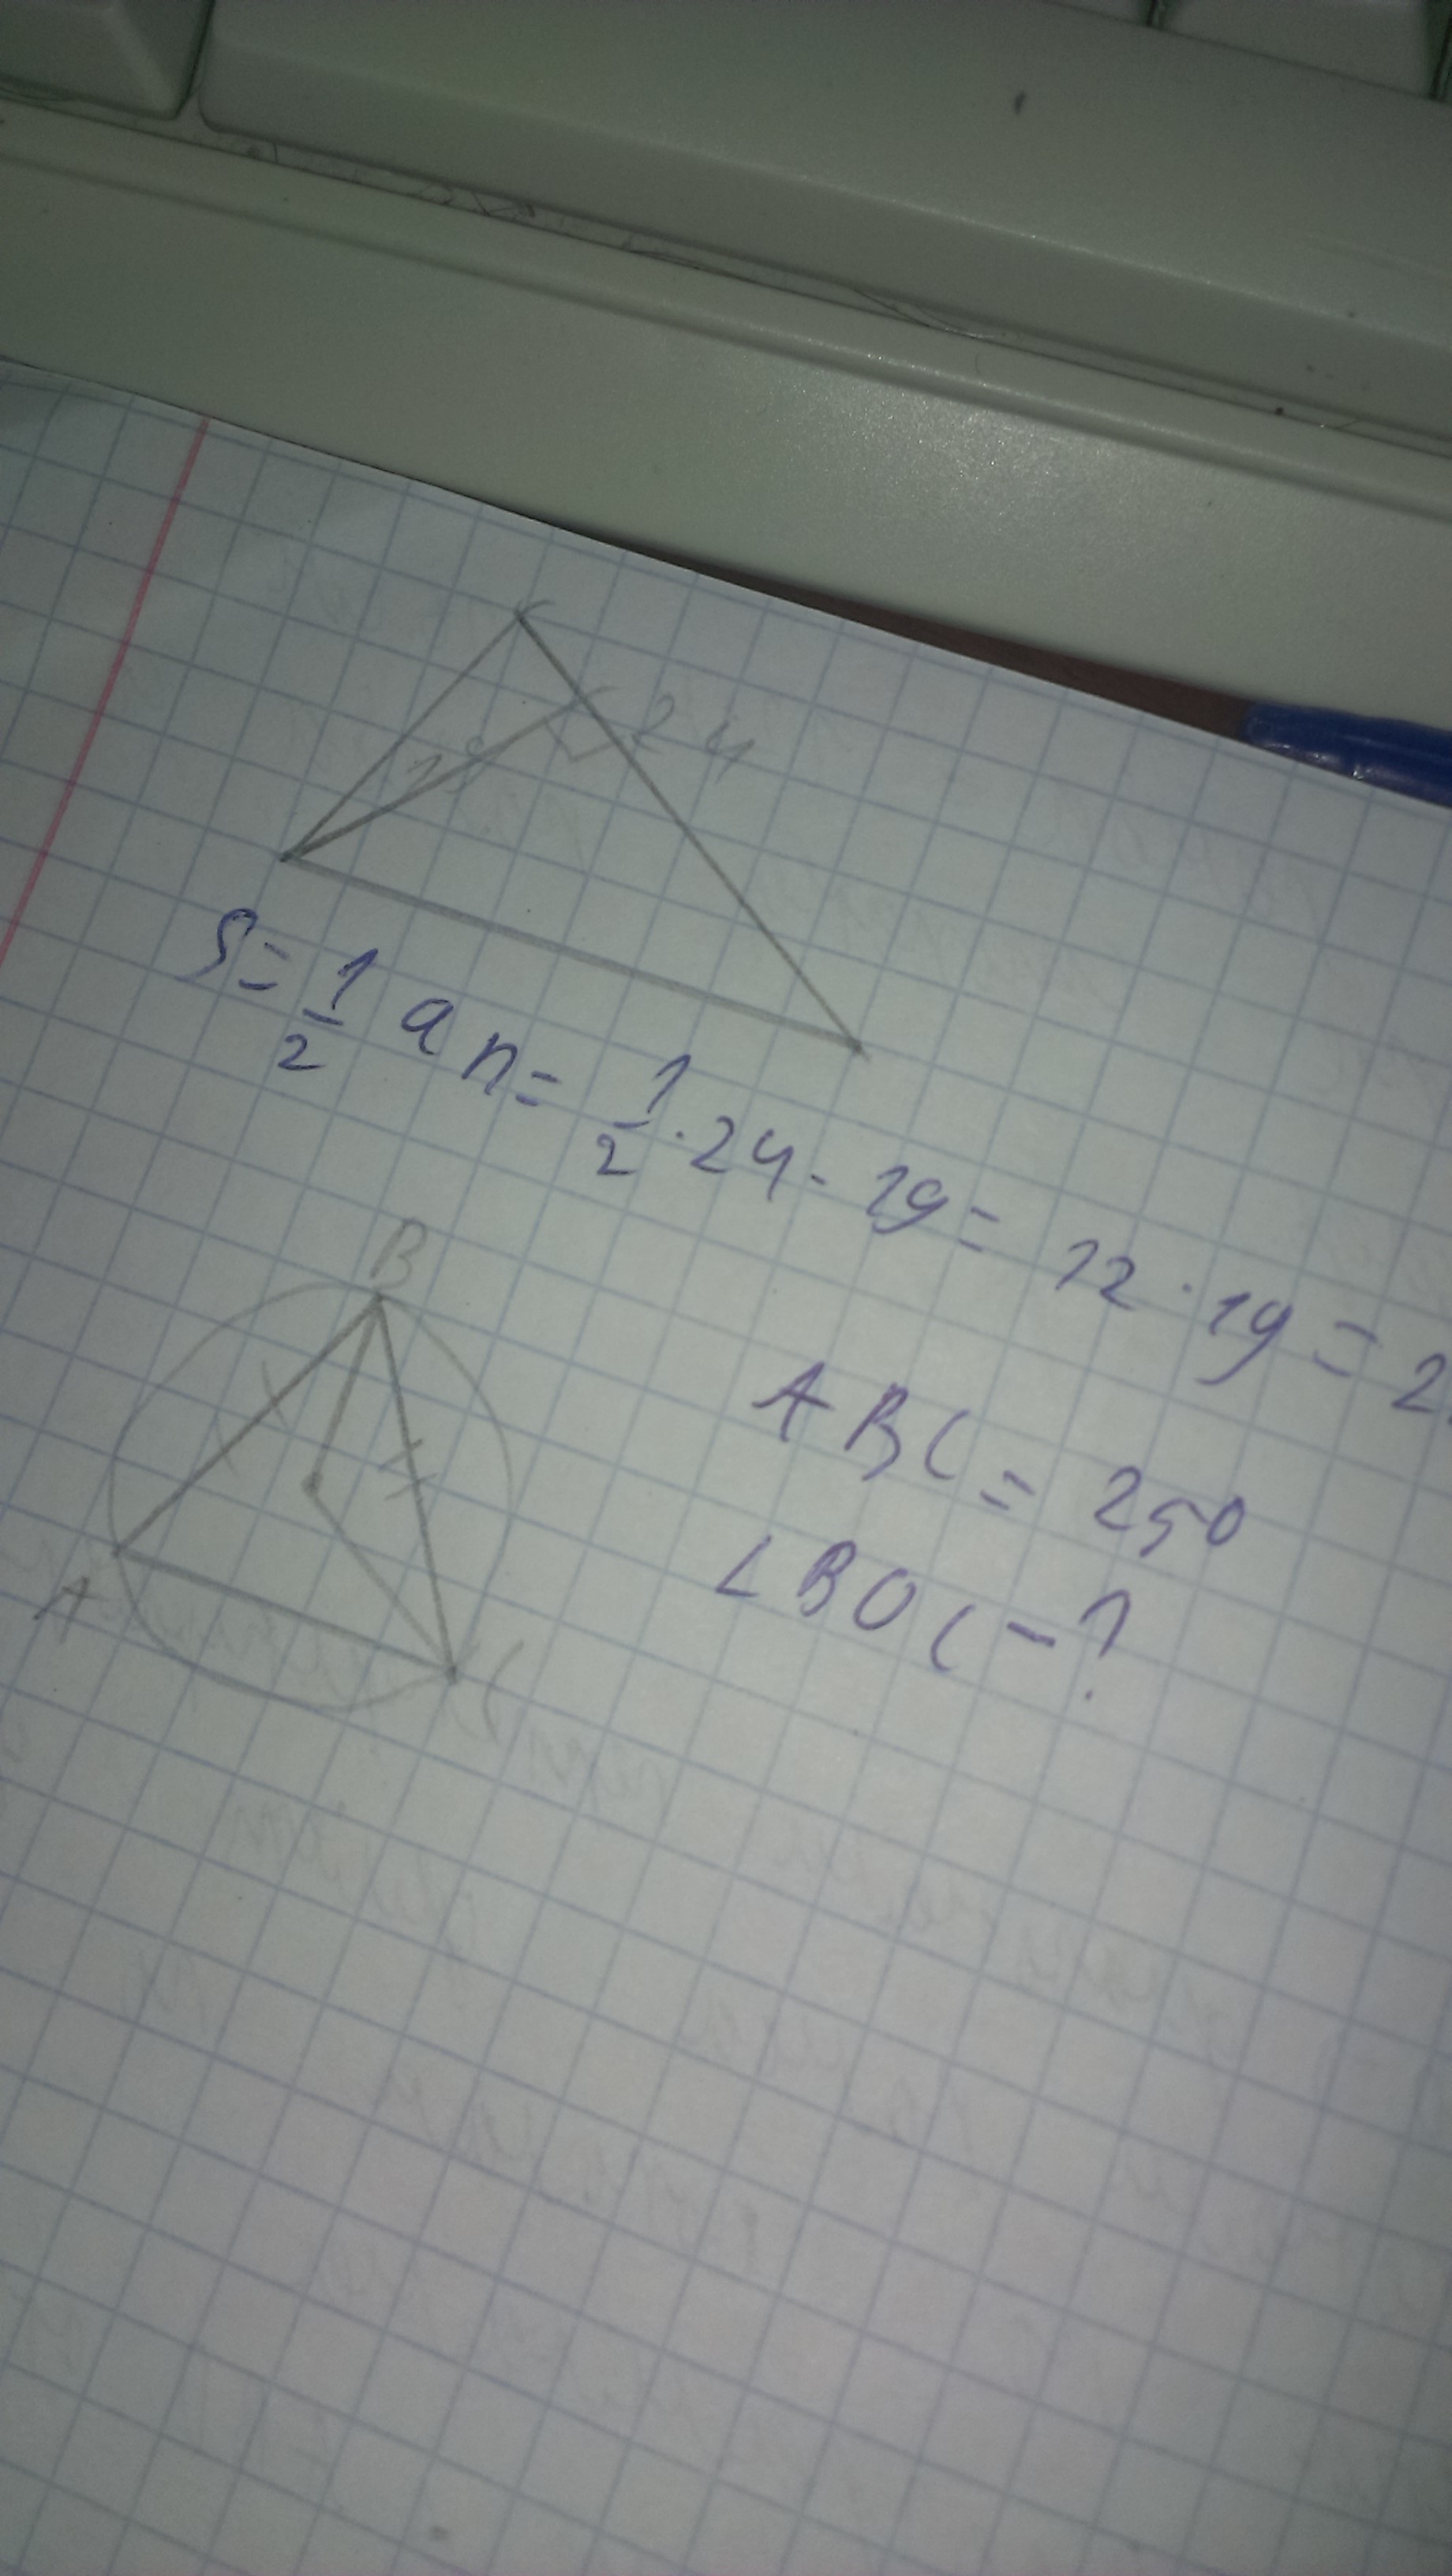 24
19
S = 1/2 a h = 1/2 · 24 · 19 = 12 · 19 = 2
B
A
C
ABC = 25°
∠BOC - ?